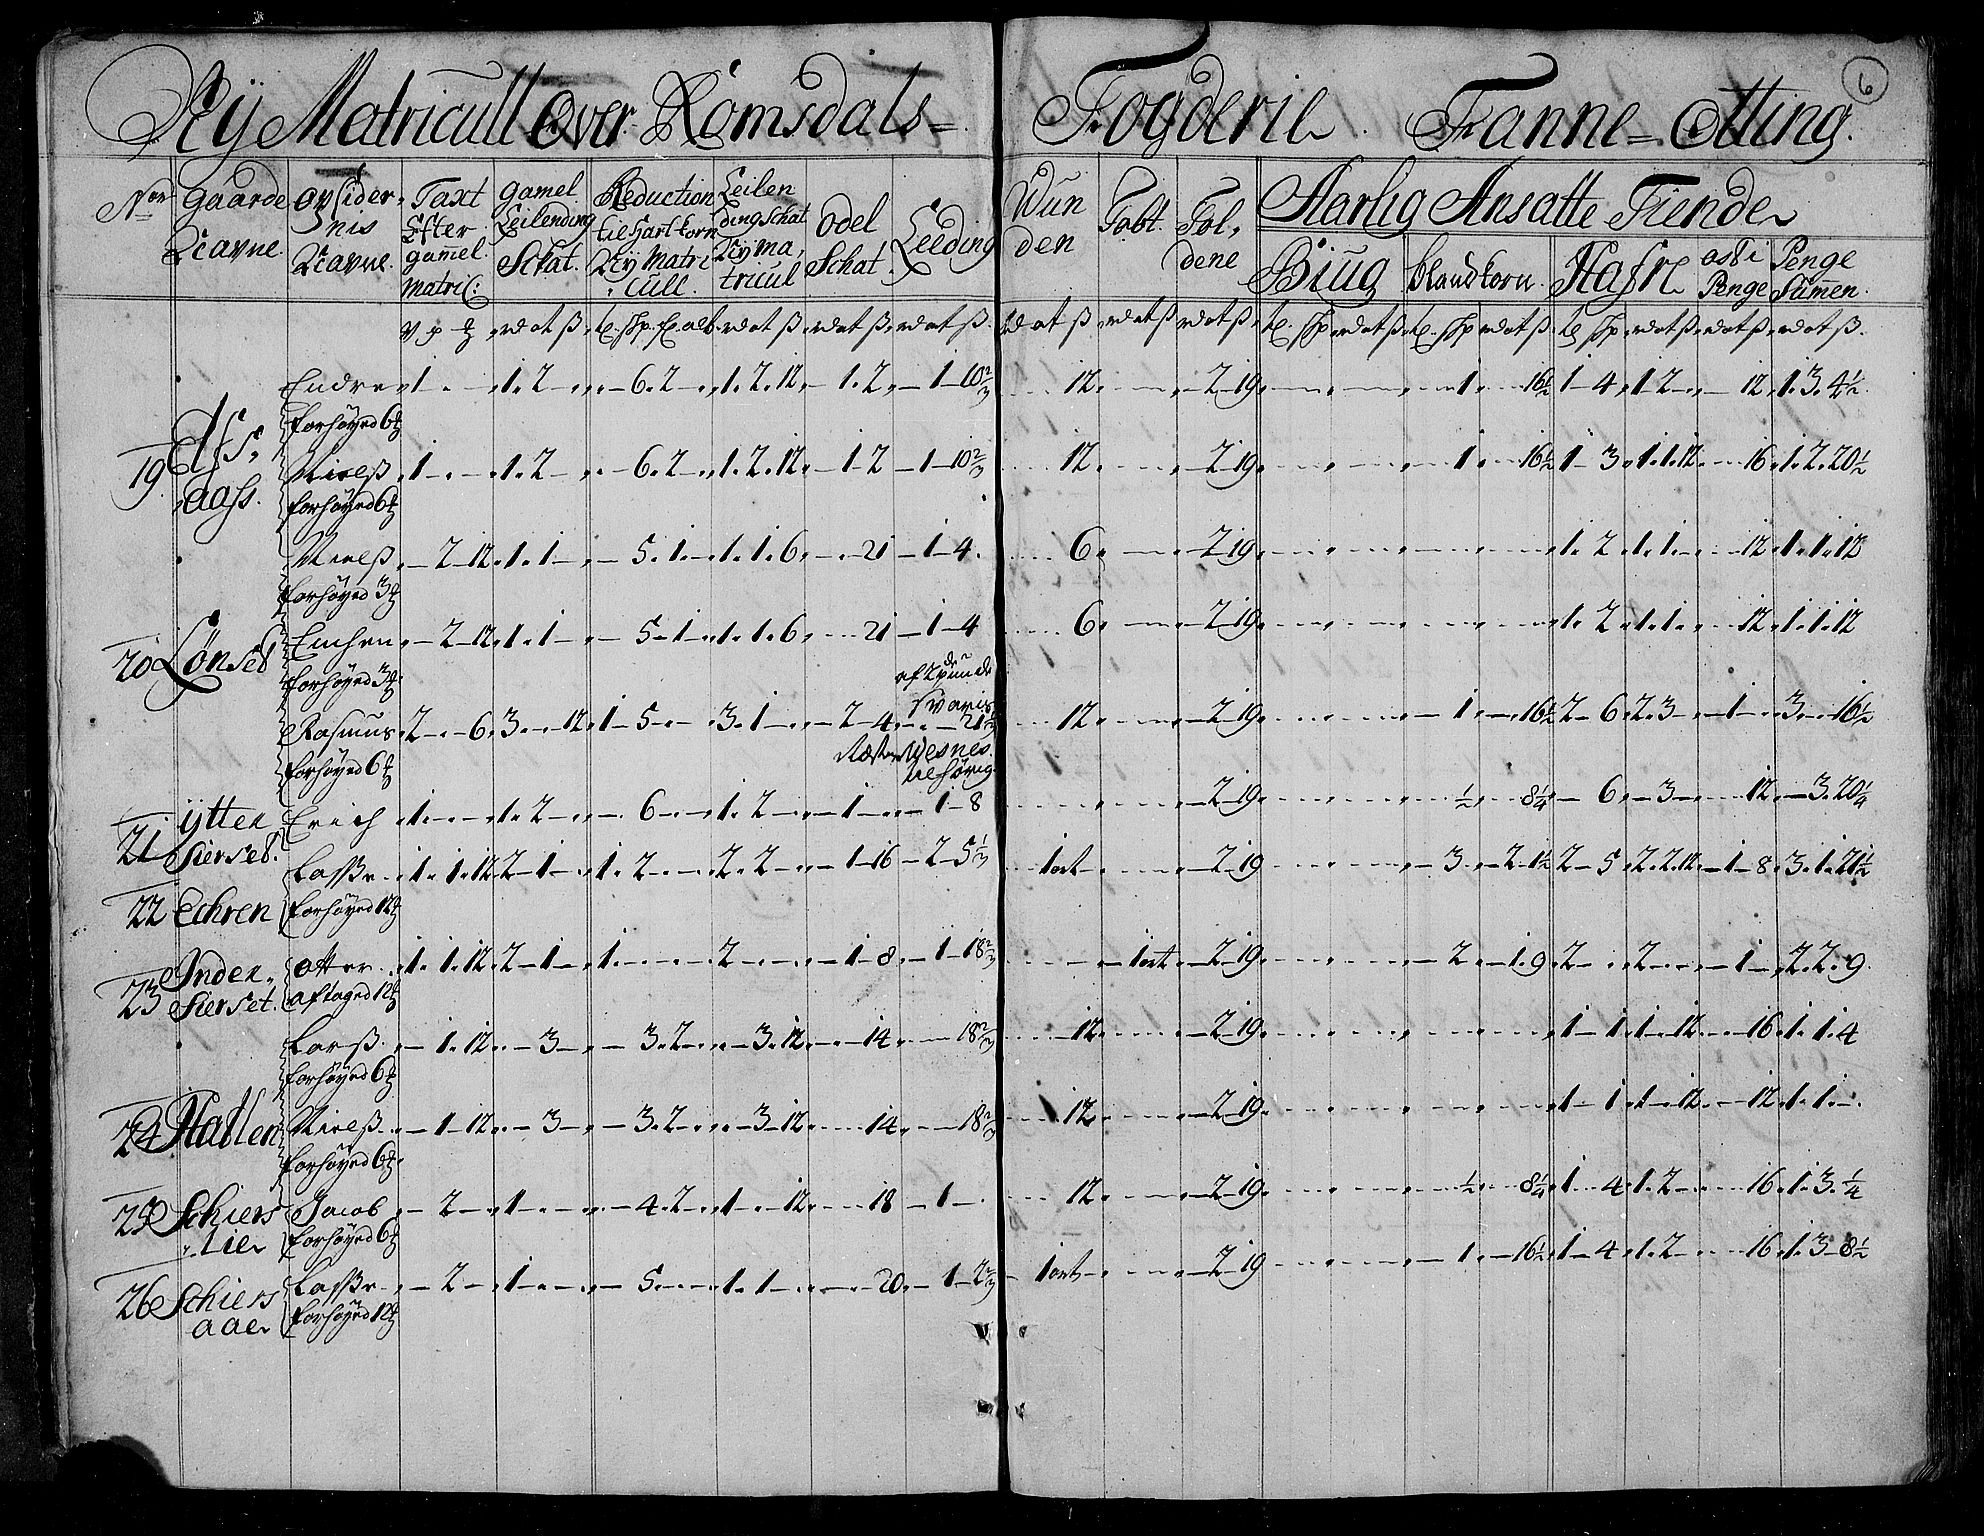 Nÿ Matricull Over Romsdals= Fogderie. Fanne=Otting.
6
No Gaarde Navne. Opsidernis Navne. Taxt Efter gamel Matric: Gamel Leilending Schat. Reduction till Hartkorn Nÿ Matricull. Leilending Schat Nÿ Matricul Odel Schat. Leeding Wunden Tobt. Foldene Aarlig Ansatte Tiende
Biug blandkorn. Hafre ost i Penge Penge Sumen.
Endre 1 1. 2 6. 2 1. 2. 12 1. 2 1 10 2/3 12 2 19 1 16 1/2 1 4 1 2 12 1. 3. 4 1/2
forhøyed 6
19 Aass.
Nielß 1 1. 2 6. 2 1. 2. 12 1 2 1 10 2/3 12 2 19 1 16 1/2 1 3 1. 1. 12 16 1. 2. 20 1/2
forhøyed 6
Nielß 2 12 1. 1 5. 1 1. 1. 6 21 1 4 6 2 19 1. 2 1. 1 12 1. 1. 12
forhøyed 3
20 Lønset
2 12 1. 1 5 1 1. 1. 6 21 1 4 6 2 19 1. 2 1. 1 12 1. 1. 12
forhøyed 3
Rasmus 2 6 3 12 1 5 3. 1 2 4 21 12 2 19 1 16 1/2 2 6 2. 3 1 3 16 1/2
forhøyed 6
21 ÿtter Sierset. Erich 1 1. 2 6 1. 2 1 1 8 2 19 1/2 8 1/4 6 3 12 3. 20 1/4
22 Echren Lasße 1. 1. 12 2 1 1. 2 2. 2 1 16 2 5 1/3 1 ort 2 19 3 2 1 1/2 2 5 2. 2. 12 1 8 3. 1. 21 1/2
forhøyed 12
23 Inder Sierset. otter 1. 1. 12 2 1 1 2 1 8 1 18 2/3 1 ort 2 19 2 1. 9 2 2 1 2. 2. 9
aftaged 12
Larß 1. 12 3 3. 2 3. 12 14 18 2/3 12 2 19 1 1 1 12 16 1. 1. 4
forhøyed 6
24 Hatlen Nielß 1 12 3 3. 2 3 12 14 18 2/3 12 2 19 1 1 1 12 12 1. 1
forhøyed 6
25 Schierslie Jacob 2 1 4. 2 1 12 18 1 12 2 19 1/2 8 1/4 1 4 1. 2 16 1. 3. 1/4
forhøyed 6
26 Schiersaae Lasße 2 1 5 1 1 20 1 2 2/3 1 ort 2 19 1 16 1/2 1 4 1. 2 16 1. 3 8 1/2
forhøyed 12